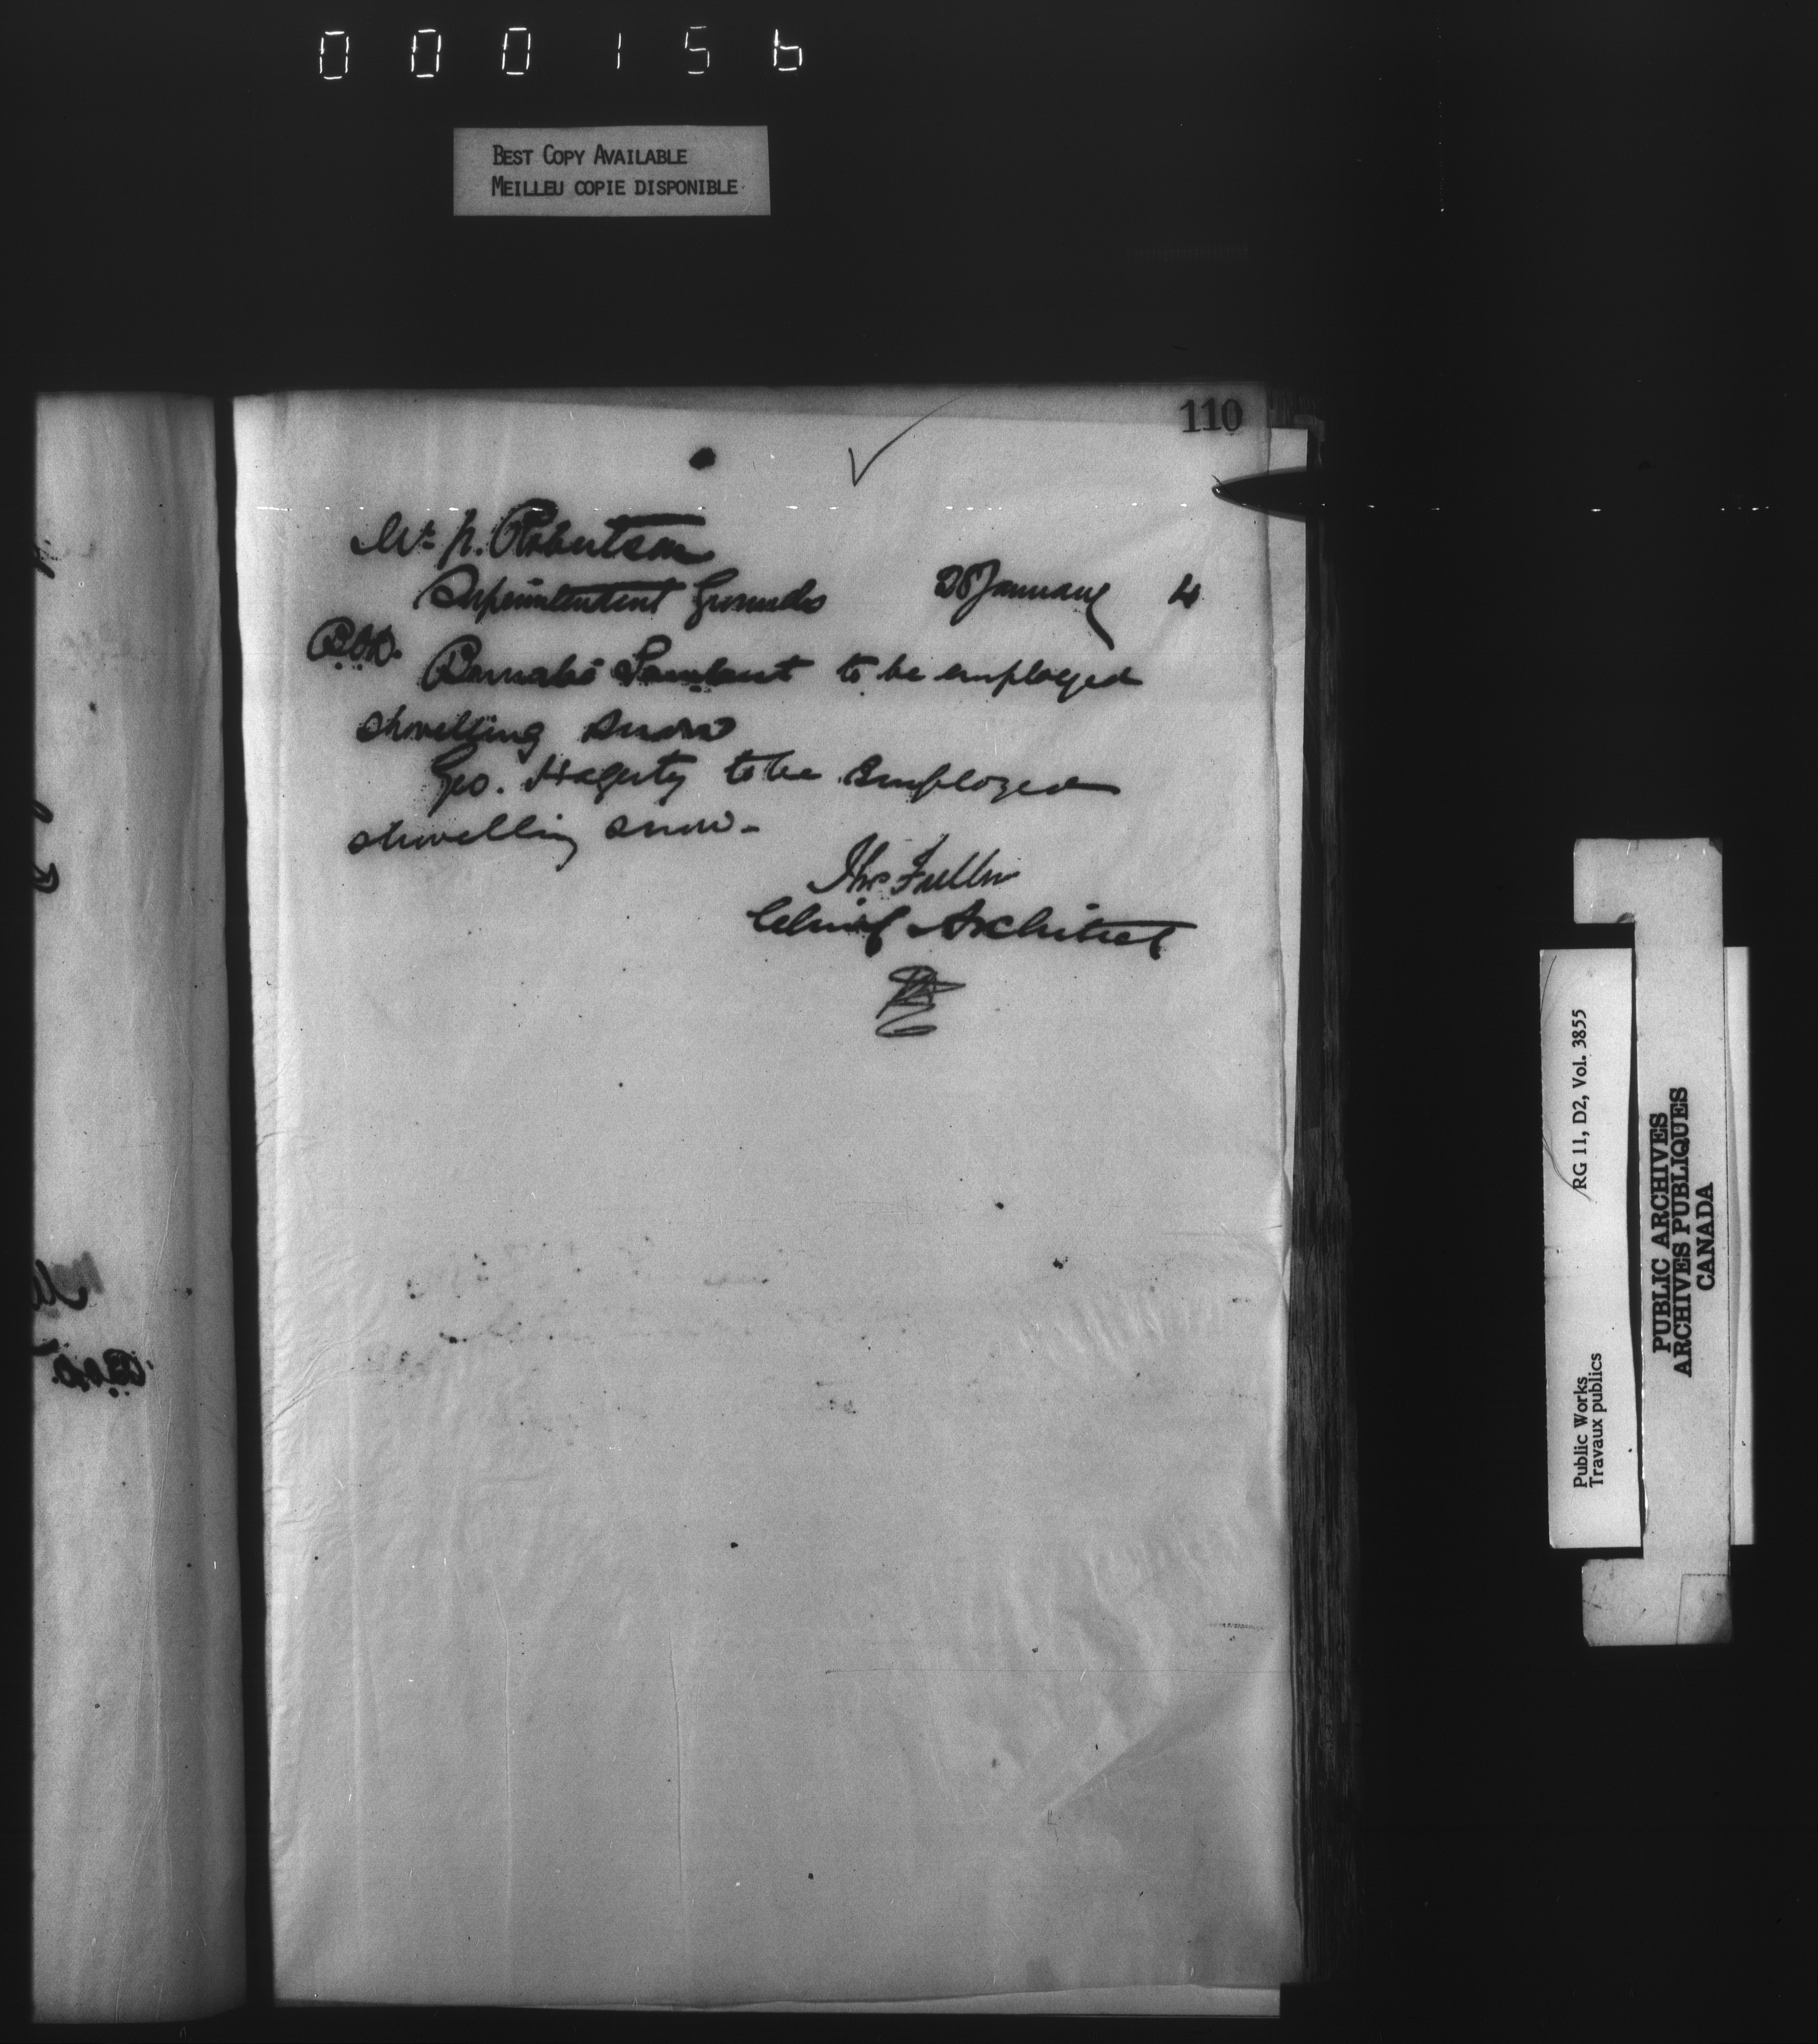 000156
BEST COPY AVAILABLE
MEILLEU COPIE DISPONIBLE
110
Mr. N. Robertson
Superintendent Grounds 28 January 4
Barnabé to be employed
shovelling snow
Geo. Hagerty to be employed
shovelling snow.
Thos Fuller
Chief Architect
RG 11, D2, Vol. 3855
Public Works
Travaux publics
PUBLIC ARCHIVES
ARCHIVES PUBLIQUES
CANADA